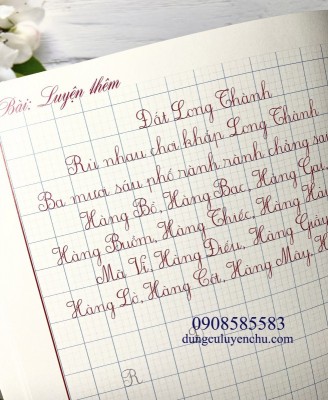 Bài: Luyện thêm
Đất Long Thành
Rủ nhau chơi khắp Long Thành
Ba mươi sáu phố rành rành chẳng sai
Hàng Bồ, Hàng Bạc, Hàng Gai
Hàng Buồm, Hàng Thiếc, Hàng
Mã Vĩ, Hàng Điếu, Hàng Giầy
Hàng Lờ, Hàng Cót, Hàng Mây,
0908585583
dungculuyenchu.com
R